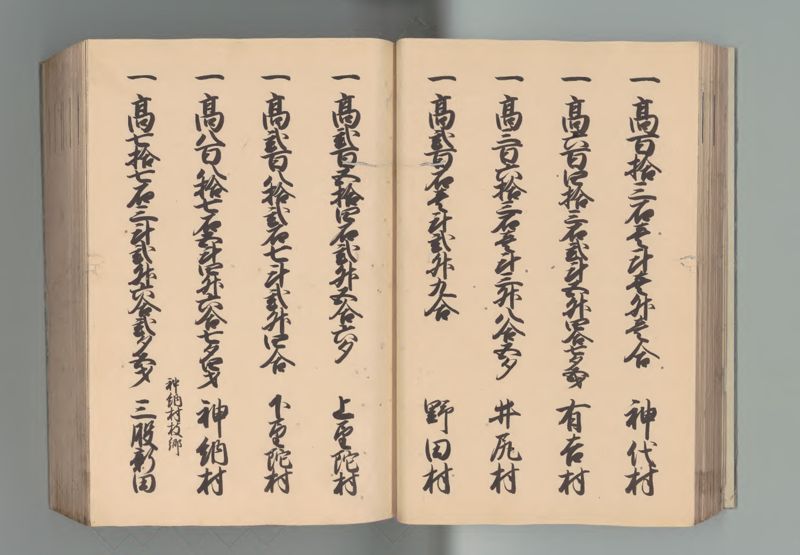 一 高百拾三石壱斗七升壱合 神代村
一 高六百四拾三石弐斗五升四合七勺五才 有吉村
一 高三百六拾三石壱斗三升八合五夕 井尻村
一 高弐百石壱斗弐升九合 野田村
一 高弐百五拾四石弐升五合六夕 上望陀村
一 高弐百八拾弐石七斗弐升四合 下望陀村
一 高八百八拾七石六斗四升六合七夕四才 神納村
神納村枝郷
一 高七拾七石三斗弐升六合弐夕五才 三股新田